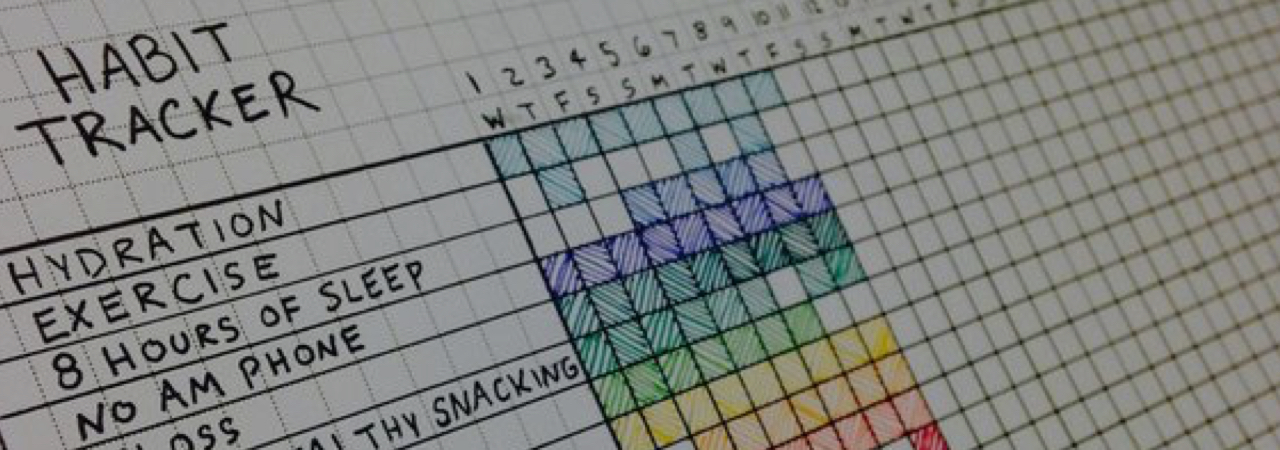 HABIT
TRACKER
1 2 3 4 5 6 7 8 9 10 11 12
W T F S S M T W T F S S M T W T F
HYDRATION
EXERCISE
8 HOURS OF SLEEP
NO AM PHONE
SNACKING